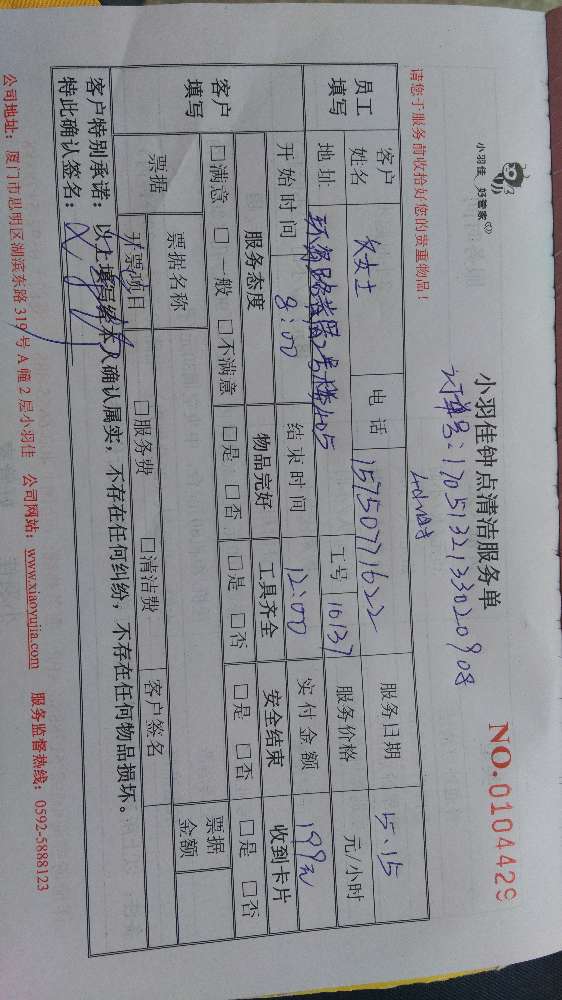 小羽佳 好管家
小羽佳钟点清洁服务单
NO.0104429
订单号:1705132133020908
请您于服务前收拾好您的贵重物品!
4小时
员工填写
客户姓名
欠女士
电话
15750771622
服务日期
5.15
地址
2号楼105
工号
10137
服务价格
元/小时
开始时间
8:00
结束时间
12:00
实付金额
199元
客户填写
服务态度
物品完好
工具齐全
安全结束
收到卡片
□满意 □一般 □不满意
□是 □否
□是 □否
□是 □否
□是 □否
票据
票据名称
票据金额
开票项目
□服务费
□清洁费
客户签名
客户特别承诺:以上填写经本人确认属实,不存在任何纠纷,不存在任何物品损坏。
特此确认签名:
公司地址:厦门市思明区湖滨东路319号A幢2层小羽佳 公司网站:www.xiaoyujia.com 服务监督热线:0592-5888123